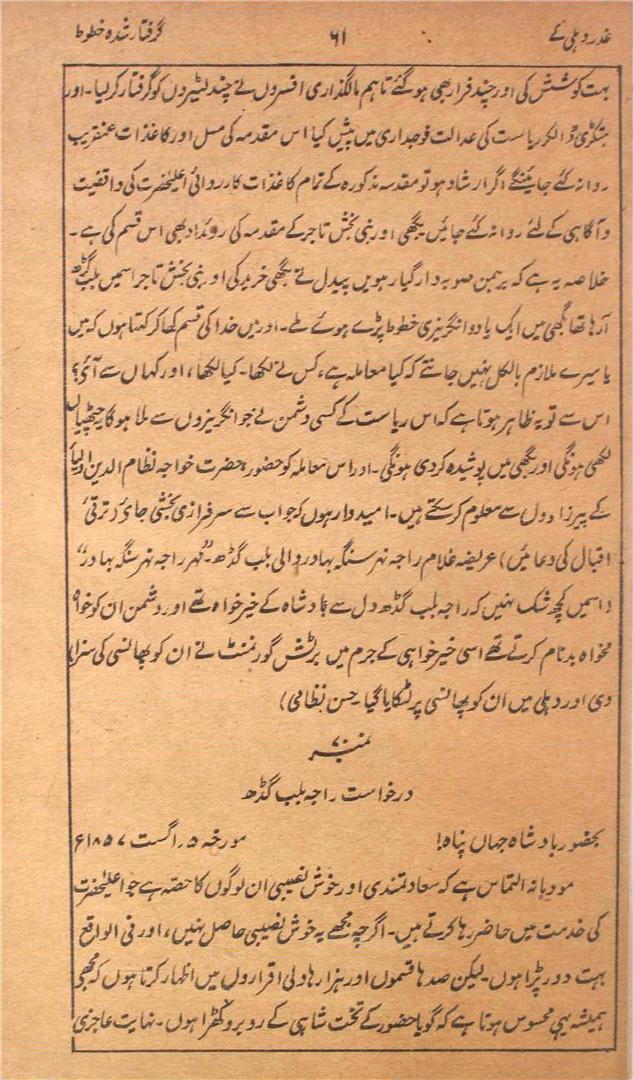 غدر دہلی کے ۶۱ گرفتار شدہ خطوط
بہت کوشش کی اور چند فرار بھی ہو گئے تاہم مالگذاری افسروں نے چند لٹیروں کو گرفتار کر لیا۔ اور
ہتکڑی ڈالکر ریاست کی عدالت فوجداری میں پیش کیا اس مقدمہ کی مسل اور کاغذات عنقریب
روانہ کئے جائینگے اگر ارشاد ہو تو مقدمہ مذکورہ کے تمام کاغذات کارروائی اعلیٰحضرت کی واقفیت
و آگاہی کے لئے روانہ کئے جائیں بگھی اور نبی بخش تاجر کے مقدمہ کی روئداد بھی اس قسم کی ہے۔
خلاصہ یہ ہے کہ برہمن صوبہ دار گیارہویں پیدل نے بگھی خرید کی اور نبی بخش تاجر اسمیں بلب گڈھ
آرہا تھا بگھی میں ایک یا دو انگریزی خطوط پڑے ہوئے ملے۔ اور میں خدا کی قسم کھا کر کہتا ہوں کہ میں
یا میرے ملازم بالکل نہیں جانتے کہ کیا معاملہ ہے، کس نے لکھا۔ کیا لکھا، اور کہاں سے آئی؟
اس سے تو یہ ظاہر ہوتا ہے کہ اس ریاست کے کسی دشمن نے جو انگریزوں سے ملا ہو گا چٹھیاں
لکھی ہونگی اور بگھی میں پوشیدہ کر دی ہونگی۔ اور اس معاملہ کو حضور، حضرت خواجہ نظام الدین اولیاؒ
کے پیرزادوں سے معلوم کر سکتے ہیں۔ امیدوار ہوں کہ جواب سے سرفرازی بخشی جائے (ترقیٔ
اقبال کی دعائیں) عریضہ غلام راجہ نہر سنگہ بہادر والی بلب گڈھ۔ "مہر راجہ نہر سنگہ بہادر"
(اسمیں کچھ شک نہیں کہ راجہ بلب گڈھ دل سے بادشاہ کے خیر خواہ تھے اور دشمن ان کو خواہ
مخواہ بدنام کرتے تھے اسی خیر خواہی کے جرم میں برٹش گورنمنٹ نے ان کو پھانسی کی سزا
دی اور دہلی میں ان کو پھانسی پر لٹکایا گیا حسن نظامی)
نمبر ۷
درخواست راجہ بلب گڈھ
بحضور بادشاہ جہاں پناہ! مورخہ ۵؍ اگست ۱۸۵۷ء
مودبانہ التماس ہے کہ سعادتمندی اور خوش نصیبی ان لوگوں کا حصہ ہے جو اعلیٰحضرت
کی خدمت میں حاضر رہا کرتے ہیں۔ اگرچہ مجھے یہ خوش نصیبی حاصل نہیں، اور فی الواقع
بہت دور پڑا ہوں۔ لیکن صدہا قسموں اور ہزارہا دلی اقراروں میں اظہار کرتا ہوں کہ مجھے
ہمیشہ یہی محسوس ہوتا ہے کہ گویا حضور کے تخت شاہی کے روبرو کھڑا ہوں۔ نہایت عاجزی